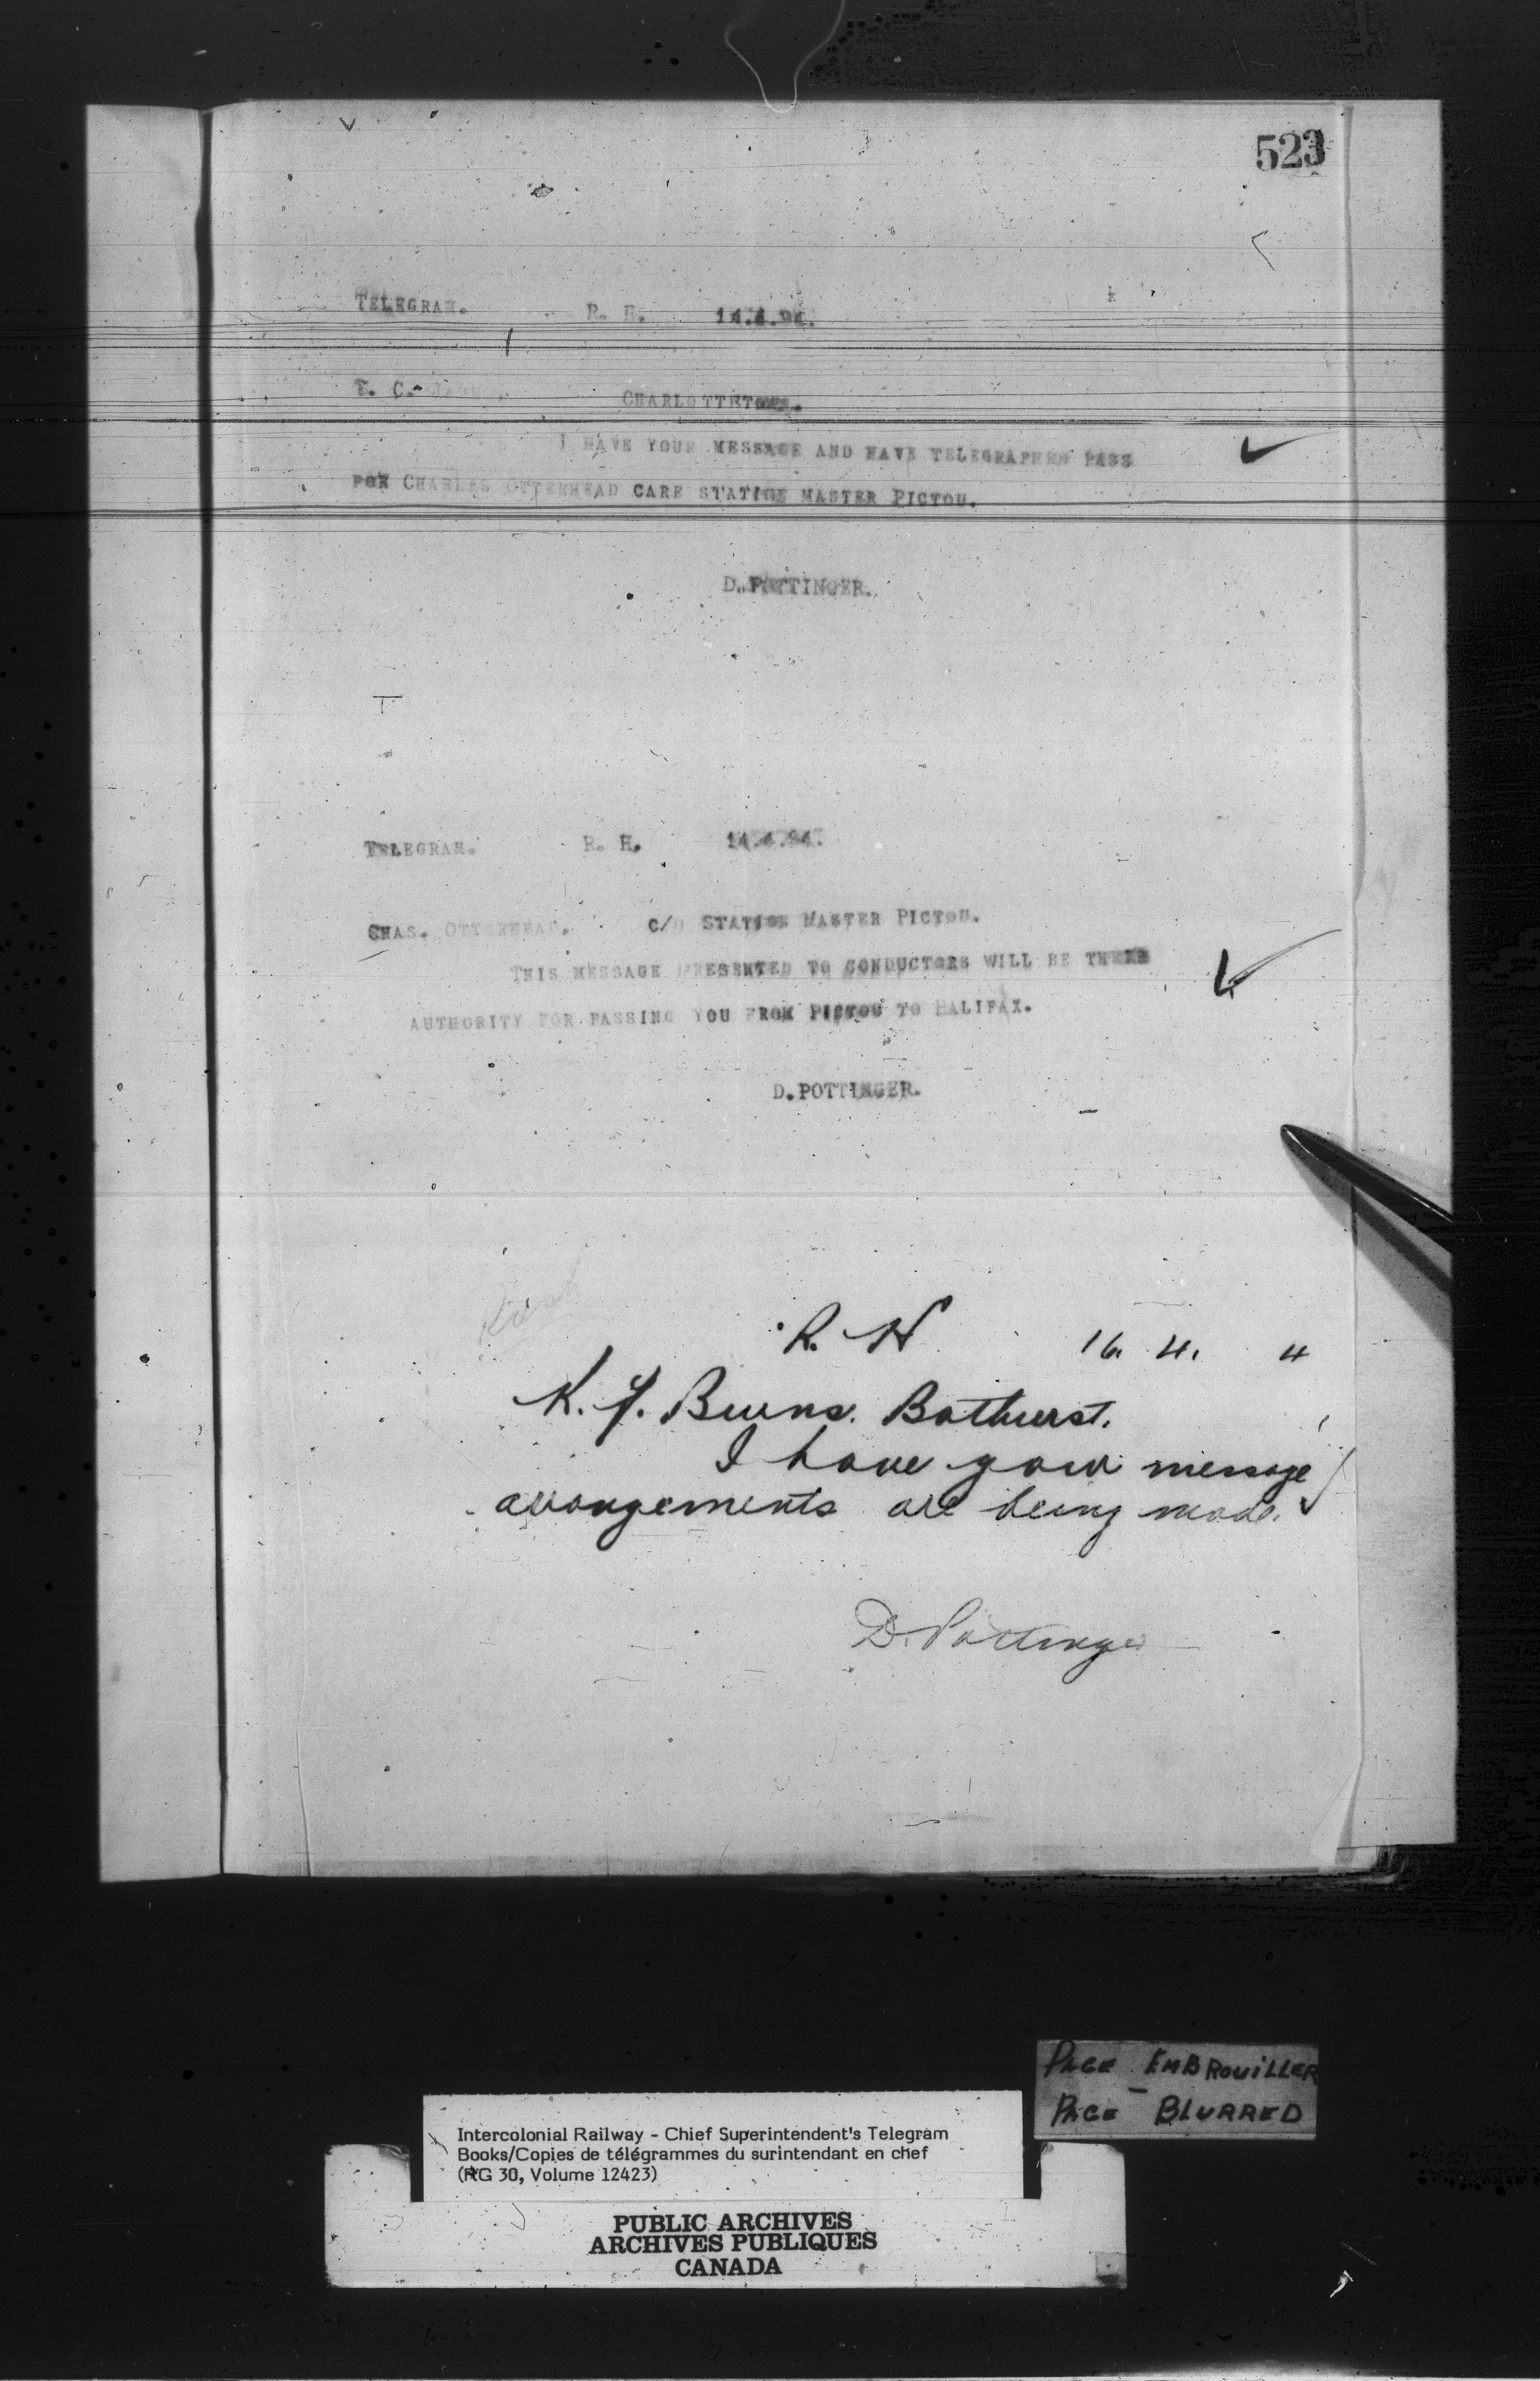 523
TELEGRAM. R. H. 14.4.94.
CHARLOTTETOWN.
I HAVE YOUR MESSAGE AND HAVE TELEGRAPHED PASS
FOR CHARLES OTTERHEAD CARE STATION MASTER PICTOU.
D. POTTINGER.
TELEGRAM. R. H. 14.4.94.
CHAS. OTTERHEAD. C/O STATION MASTER PICTOU.
THIS MESSAGE PRESENTED TO CONDUCTORS WILL BE THEIR
AUTHORITY FOR PASSING YOU FROM PICTOU TO HALIFAX.
D. POTTINGER.
R. H 16. 4. 4
K. F. Burns. Bathurst.
I have your message
arrangements are being made.
D. Pottinger
PAGE EMBROUILLER
PAGE BLURRED
Intercolonial Railway - Chief Superintendent's Telegram
Books/Copies de télégrammes du surintendant en chef
(RG 30, Volume 12423)
PUBLIC ARCHIVES
ARCHIVES PUBLIQUES
CANADA